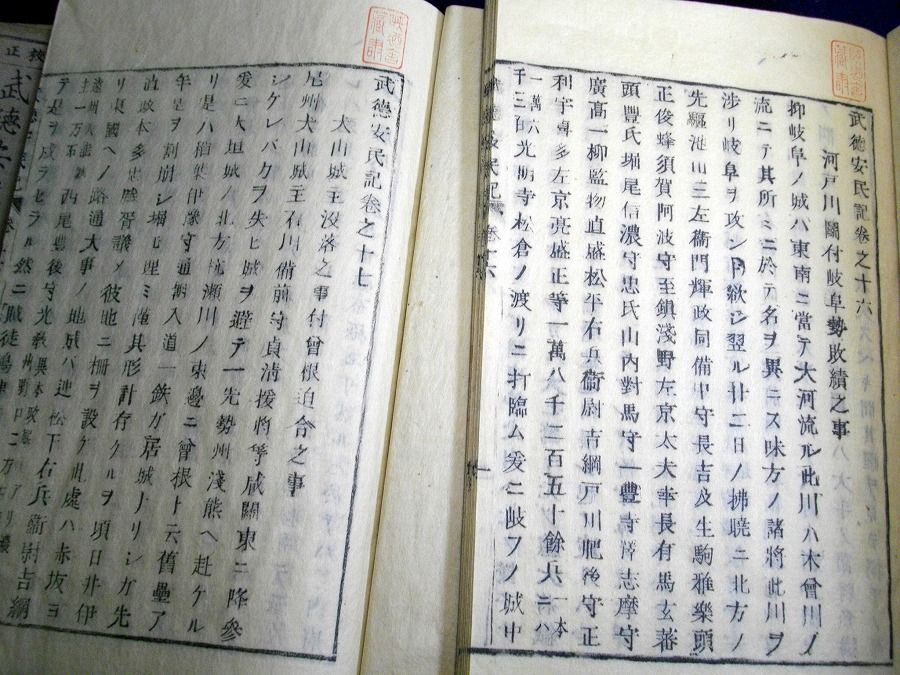 武徳安民記卷之十六
河戸川鬪付岐阜勢敗績之事
抑岐阜ノ城ハ東南ニ當テ大河流ル此川ハ木曾川ノ
流ニテ其所ミニ於テ名ヲ異ニス味方ノ諸將此川ヲ
渉リ岐阜ヲ攻ント欲シ翌ル廿二日ノ拂曉ニ北方ノ
先驅池田三左衞門輝政同備中守長吉及生駒雅樂頭
正俊蜂須賀阿波守至鎮淺野左京太夫幸長有馬玄蕃
頭豐氏堀尾信濃守忠氏山內對馬守一豐寺澤志摩守
廣高一柳監物直盛松平右兵衞尉吉綱戸川肥後守正
利宇喜多左京亮盛正等一萬八千二百五十餘人一本ニハ
一萬六千三百光明寺松倉ノ渡リニ打臨ム爰ニ岐フノ城中
武徳安民記卷之十七
犬山城主没落之事付曾根迫合之事
尾州犬山城主石川備前守貞清援將等咸關東ニ降參
シケレバ力ヲ失ヒ城ヲ避テ一先勢州淺熊ヘ赴ケル
爰ニ大垣城ノ北方杭瀬川ノ東邊ニ曾根ト云舊壘ア
リ是ハ稻葉伊豫守通朝入道一鉄ガ居城ナリシガ先
年是ヲ割崩シ堀ヒ埋ミ淹其形計存ケルヲ頃日井伊
直政本多忠勝晋議メ彼地ニ柵ヲ設ケ此處ハ赤坂ヨ
リ東國ヘノ路通大事ノ地城ハ迚松下右兵衞尉吉綱
西尾豊後守光教
テ是ヲ戍ラセラル然ニ
武徳